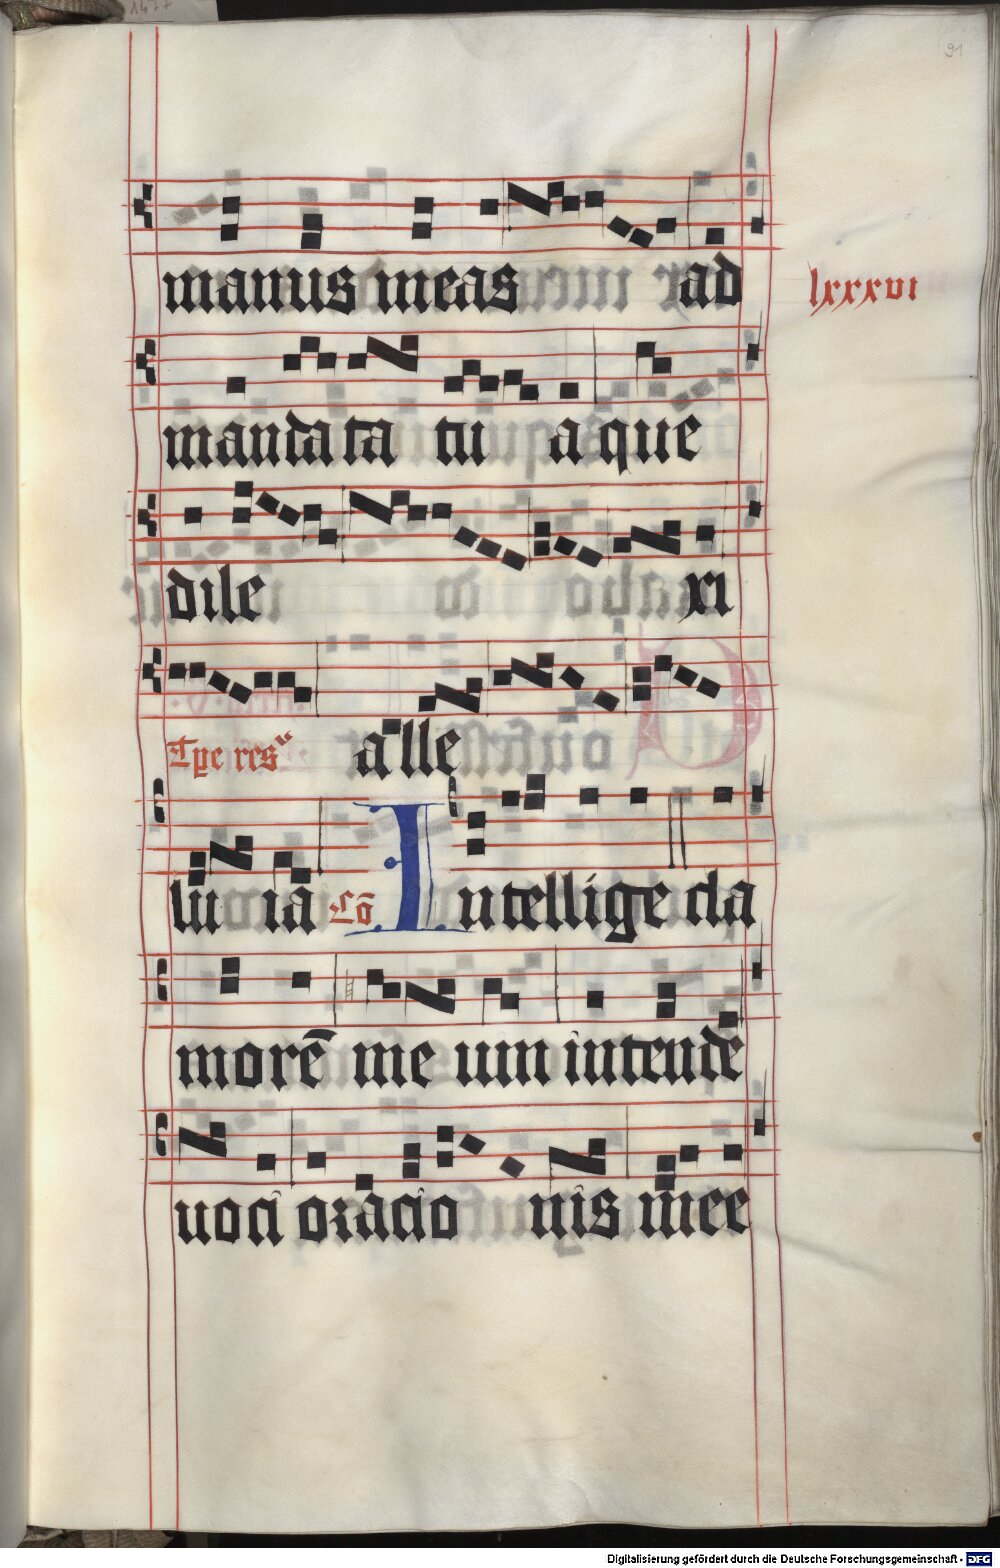 91
manus meas ad
lxxxvi
mandata tu a que
dile xi
Tpe res alle
lu ia Cō Intellige cla
morē me um intende
uoci oracio nis mee
Digitalisierung gefördert durch die Deutsche Forschungsgemeinschaft - DFG